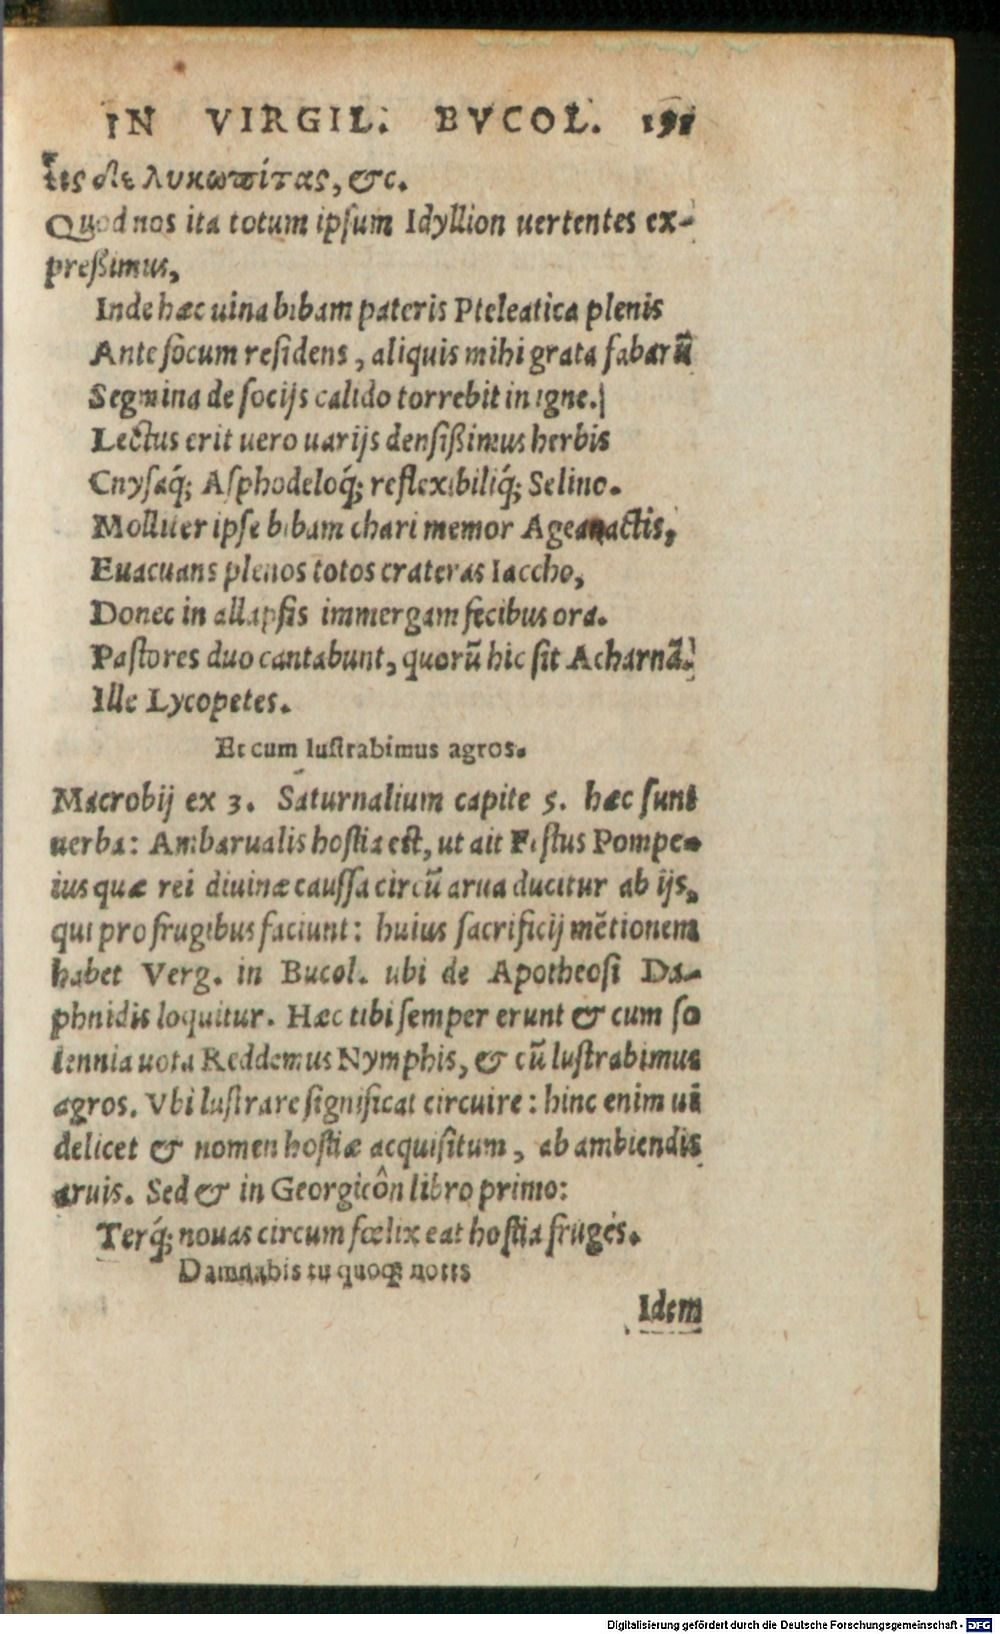 IN VIRGIL. BVCOL. 191
εις δὲ λυκωπίτας, &c.
Quod nos ita totum ipſum Idyllion uertentes ex-
preßimus,
Inde hæc uina bibam pateris Pteleatica plenis
Ante focum reſidens, aliquis mihi grata fabarū
Segmina de ſocijs calido torrebit in igne.
Lectus erit uero uarijs denſißimus herbis
Cnyſaq́; Aſphodeloq́; reflexibiliq́; Selino.
Molliter ipſe bibam chari memor Ageanactis,
Euacuans plenos totos crateras Iaccho,
Donec in allapſis immergam fecibus ora.
Paſtores duo cantabunt, quorū hic ſit Acharnã.
Ille Lycopetes.
Et cum luſtrabimus agros.
Macrobij ex 3. Saturnalium capite 5. hæc ſunt
uerba: Ambarualis hoſtia eſt, ut ait Feſtus Pompe-
ius quæ rei diuinæ cauſſa circū arua ducitur ab ijs,
qui pro frugibus faciunt: huius ſacrificij mētionem
habet Verg. in Bucol. ubi de Apotheoſi Da-
phnidis loquitur. Hæc tibi ſemper erunt & cum ſo
lennia uota Reddemus Nymphis, & cū luſtrabimus
agros. Vbi luſtrare ſignificat circuire: hinc enim ui
delicet & nomen hoſtiæ acquiſitum, ab ambiendis
aruis. Sed & in Georgicôn libro primo:
Terq́; nouas circum fœlix eat hoſtia fruges.
Damnabis tu quoq; uotis
Idem
Digitalisierung gefördert durch die Deutsche Forschungsgemeinschaft - DFG